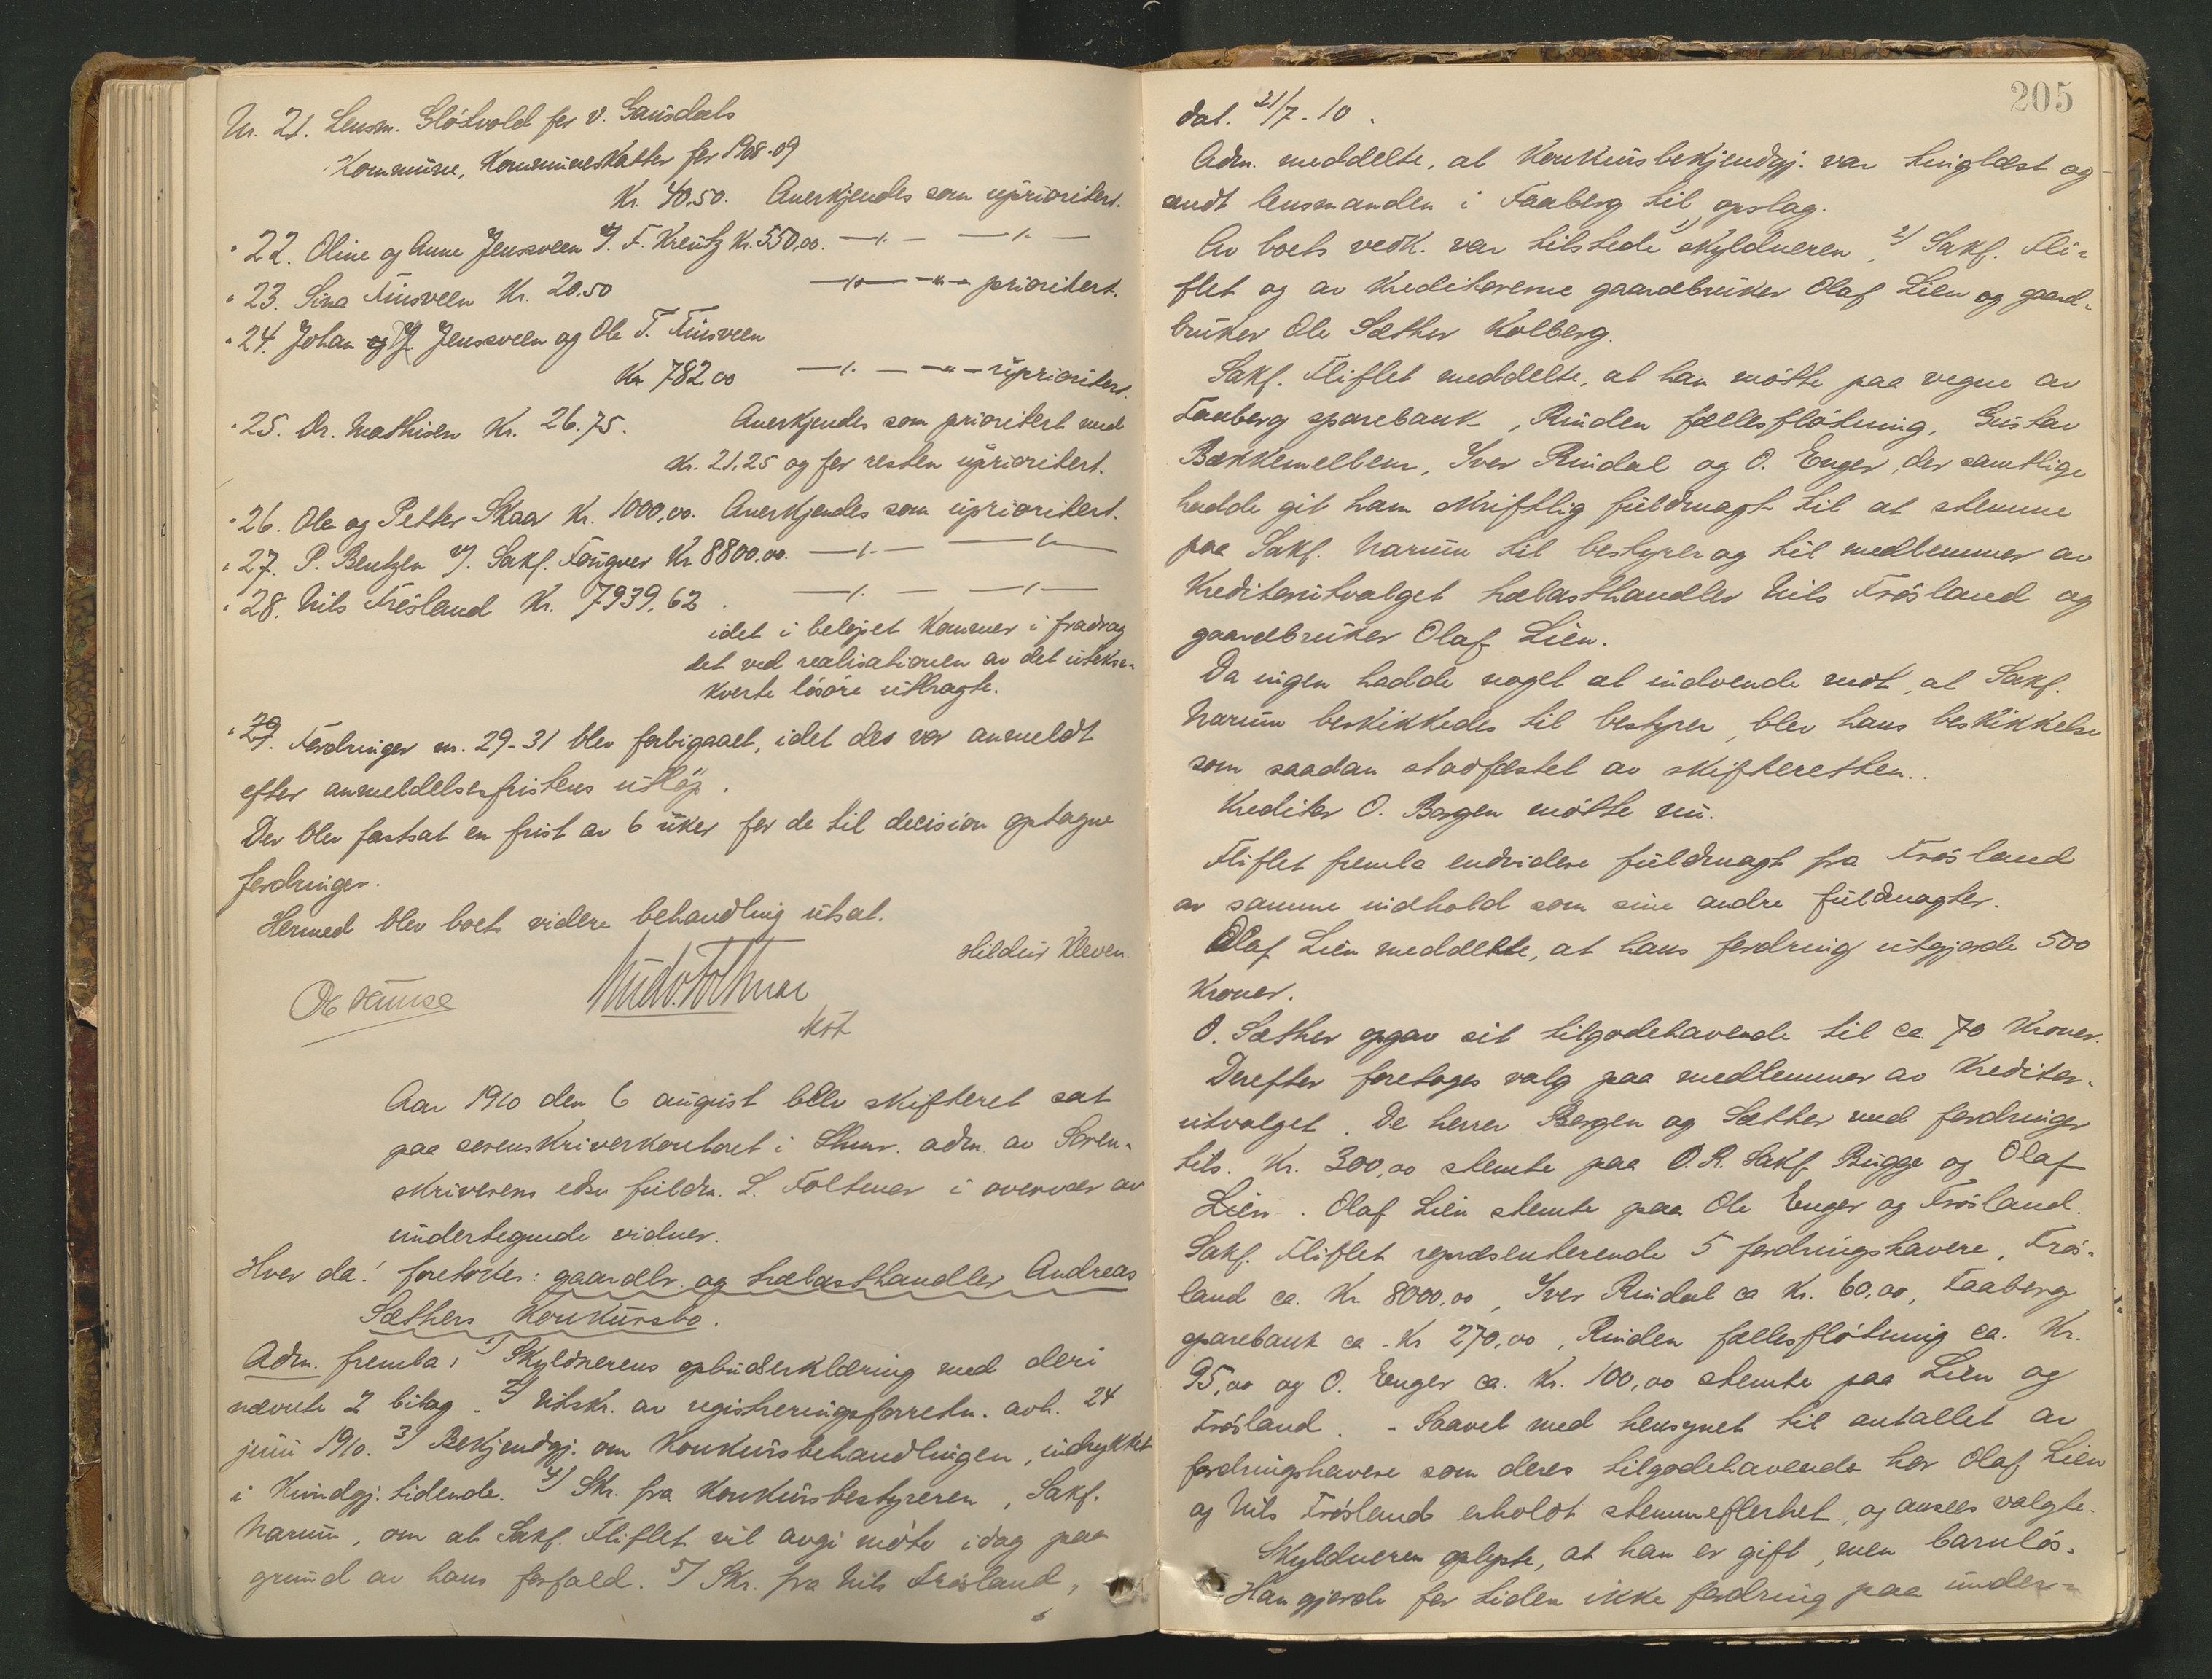 Nr. 21. Lensm. Glötvold for v. Gausdals
Kommune, Kommuneskatter for 1908-09
Kr. 40.50. Anerkjendes som uprioritert.
" 22. Oline og Anne Jensveen v/ F. Kreutz Kr. 550,00. —"— —"—
" 23. Sina Fuisveen Kr. 20.50 —"— —"— prioritert.
" 24. Johan og J. Jensveen og Ole T. Fuisveen
Kr 782.00 —"— —"— uprioritert.
" 25. Dr. Mathisen Kr. 26.75. Anerkjendes som prioritert med
Kr. 21,25 og for resten uprioritert.
" 26. Ole og Petter Skaar Kr. 1000,00. Anerkjendes som uprioritert.
" 27. P. Bentzen v/ Sakf. Fougner Kr 8800.00. —"— —"—
" 28. Nils Frösland Kr. 7939,62. —"— —"—
idet i beløpet kommer i fradrag
det ved realisationen av det utekse-
kverte lösöre utbragte.
" 29. Fordringer nr. 29-31 blev forbigaaet, idet des var anmeldt
efter anmeldelsesfristens utlöp.
Der blev fastsat en frist av 6 uker for de til decision optagne
fordringer.
Hermed blev boets videre behandling utsat.
Hildur Kleven
Aar 1910 den 6 august blev skifteret sat
paa sorenskriverkontoret i Lhmr. adm. av Soren-
skriverens edsv fuldm. L. Foltmar i overvær av
undertegnede vidner.
Hvor da! foretoges: gaardbr. og trælasthandler Andreas
Sæthers Konkursbo.
Adm. fremla: 1/ Skyldnerens opbudserklæring med deri
nævnte 2 bilag. 2/ Utskr. av registreringsforretn. avh. 24
juni 1910. 3/ Bekjendtgj. om Konkursbehandlingen, indrykket
i Kundgj. tidende. 4/ Skr. fra Konkursbestyreren, Sakf.
Narum, om at Sakf. Fliflet vil avgi møte idag paa
grund av hans forfald. 5/ Skr. fra Nils Frösland,
205
dat. 21/7 - 10.
Adm. meddelte, at Konkursbekjendtgj. var tinglæst og
sendt lensmanden i Faaberg til opslag.
Av boets vedk. var tilstede 1/ skyldneren, 2/ Sakf. Fli-
flet og av Kreditorerne gaardbruker Olaf Lien og gaard-
bruker Ole Sæther Kolberg.
Sakf. Fliflet meddelte, at han mötte paa vegne av
Faaberg sparebank, Rinden fællesflötning, Gustav
Bækkemellem, Iver Rindal og O. Enger, der samtlige
hadde git ham skriftlig fuldmagt til at stemme
paa Sakf. Narum til bestyrer og til medlemmer av
Kreditorutvalget trælasthandler Nils Frösland og
gaardbruker Olaf Lien.
Da ingen hadde noget at indvende mot, at Sakf.
Narum beskikkedes til bestyrer, blev hans beskikkelse
som saadan stadfæstet av skifteretten.
Kreditor O. Bergen mötte nu.
Fliflet fremla endvidere fuldmagt fra Frösland
av samme indhold som sine andre fuldmagter.
Olaf Lien meddelte, at hans fordring utgjorde 500
Kroner.
O. Sæther opgav sit tilgodehavende til ca. 70 Kroner.
Derefter foretoges valg paa medlemmer av Kreditor-
utvalget. De herrer Bergen og Sæther med fordringer
tils. Kr. 300,00 stemte paa O.R. Sakf. Bugge og Olaf
Lien. Olaf Lien stemte paa Ole Enger og Frösland.
Sakf. Fliflet repræsenterende 5 fordringshavere, Frös-
land ca. Kr 8000,00, Iver Rindal ca Kr. 60,00, Faaberg
sparebank ca. Kr 270,00, Rinden fællesflötning ca. Kr.
95,00 og O. Enger ca. Kr. 100,00 stemte paa Lien og
Frösland. - Saavel med hensynet til antallet av
fordringshavere som deres tilgodehavende har Olaf Lien
og Nils Frösland erholdt stemmeflerhet, og ansees valgte.
Skyldneren oplyste, at han er gift, men barnlös.
Han gjorde for tiden ikke fordring paa under-